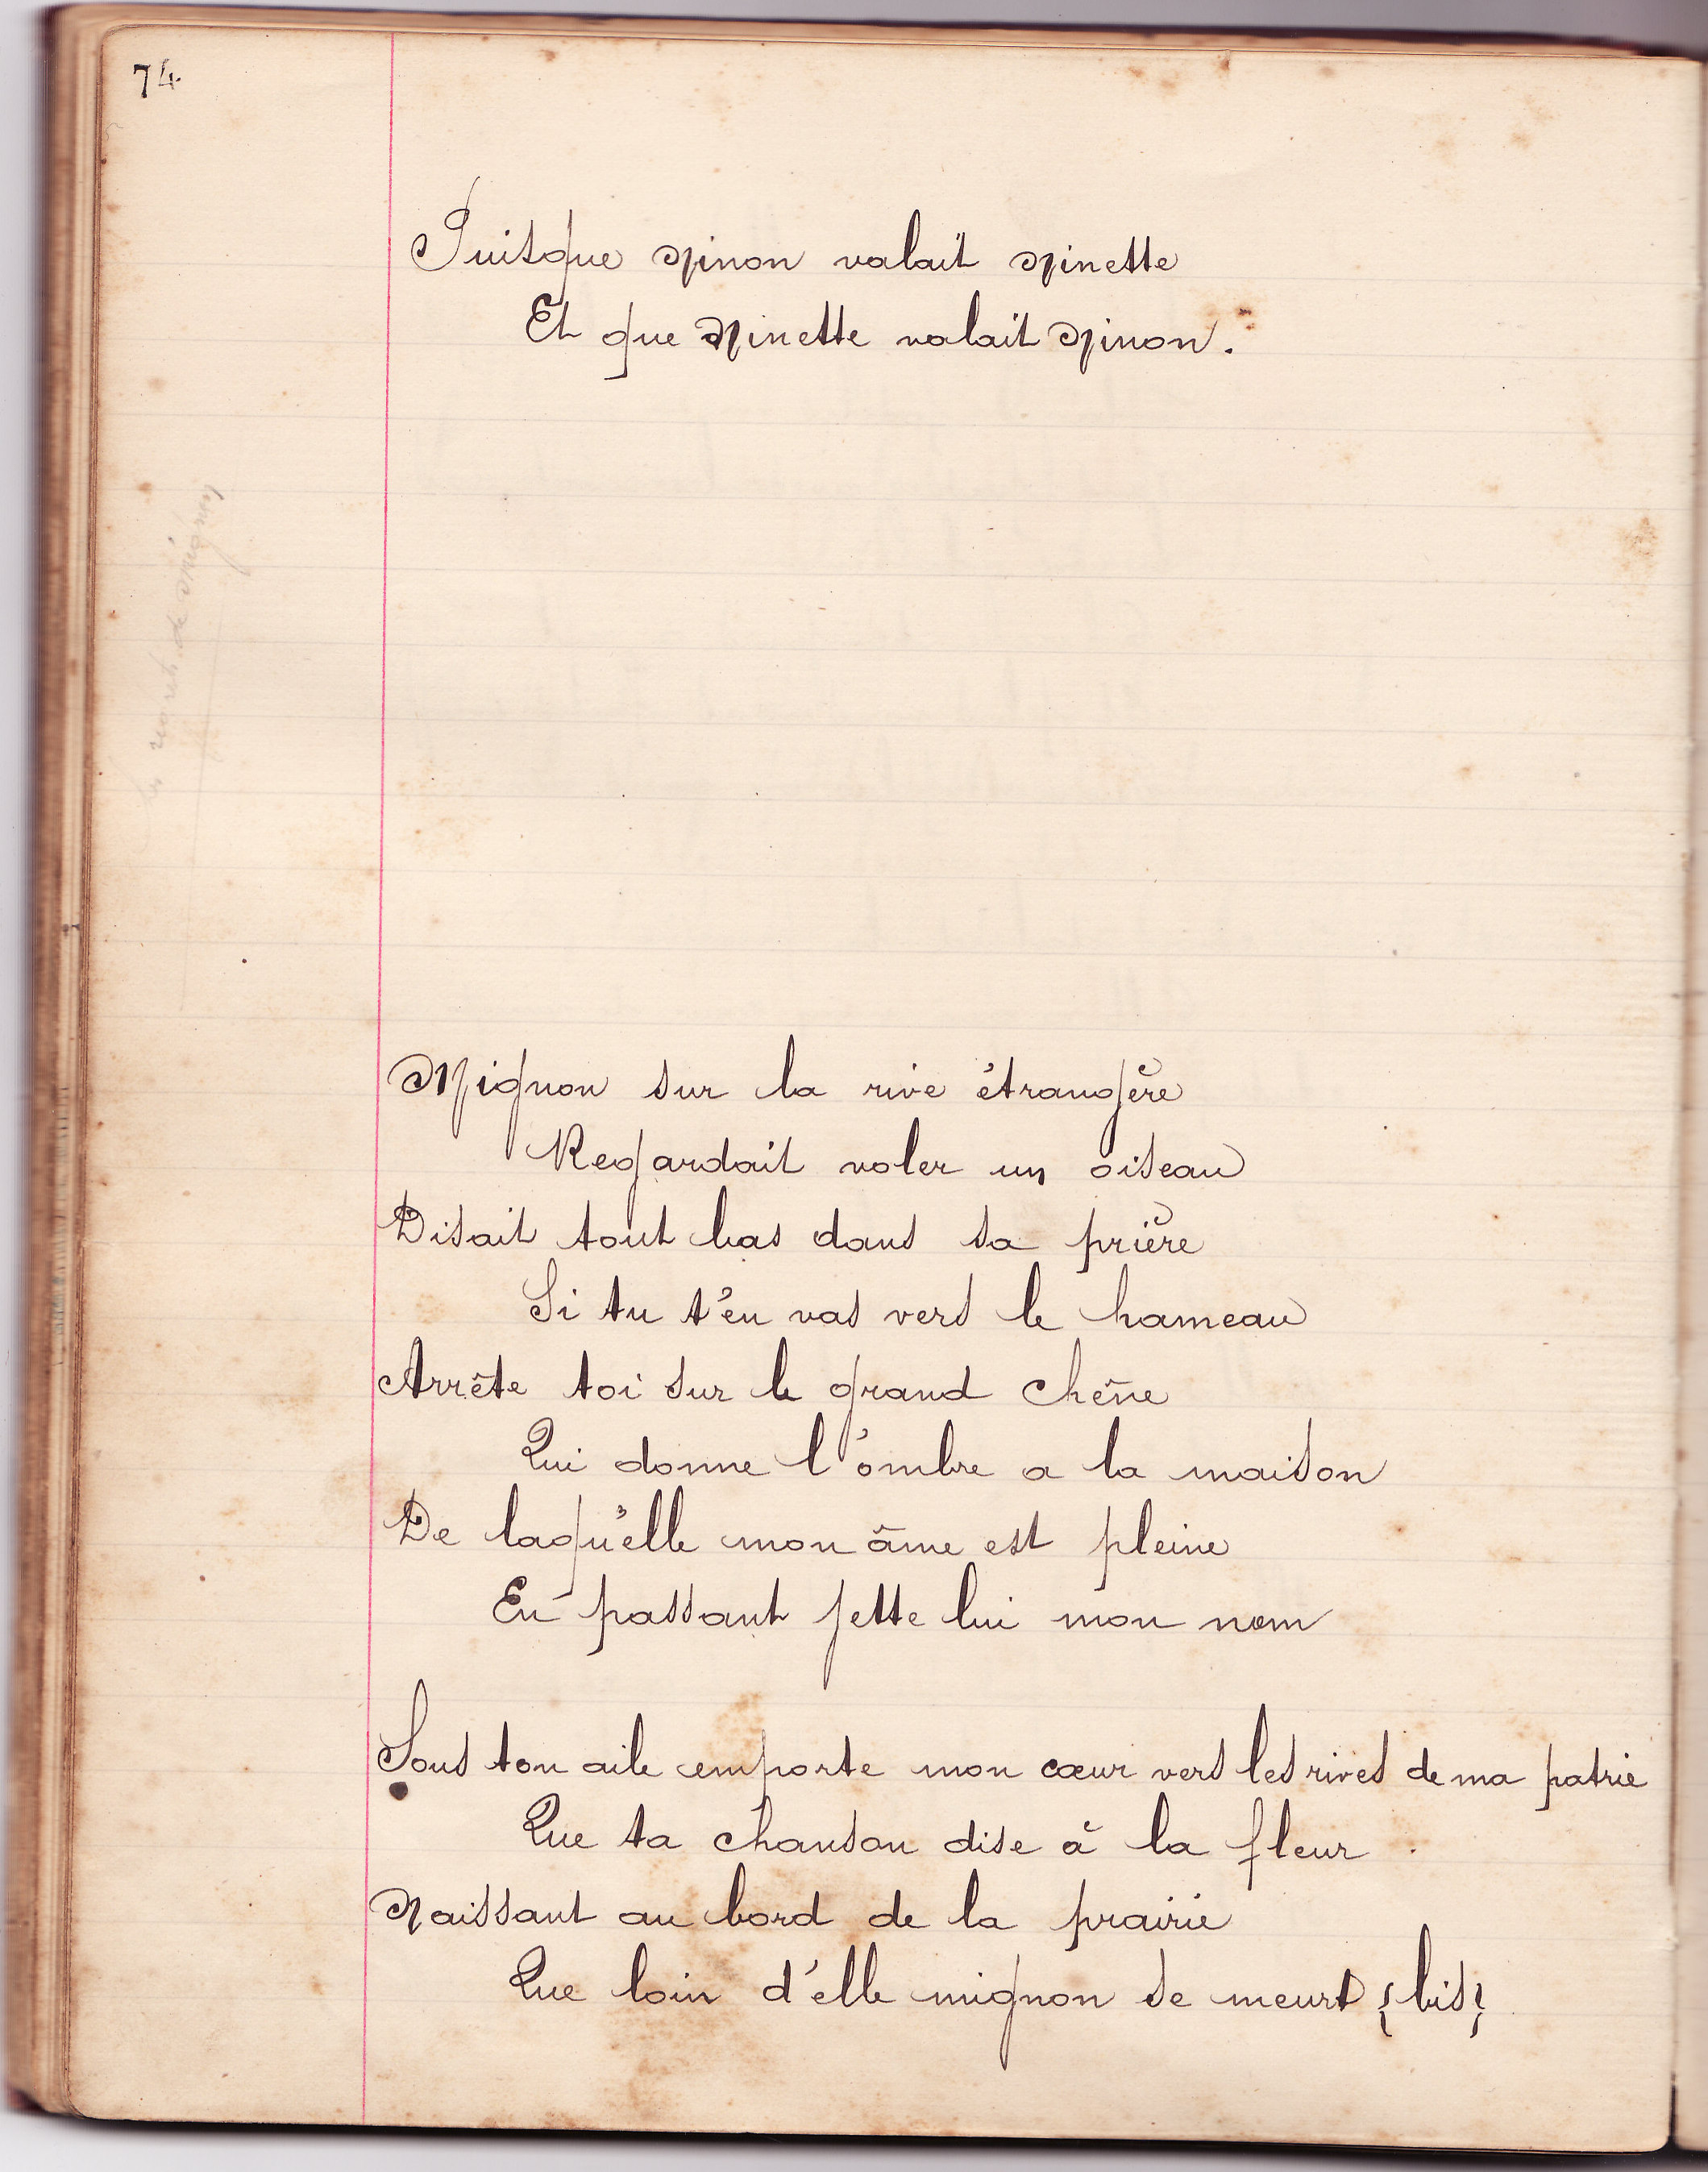 74.
Puisque Ninon valait Ninette
Et que Ninette valait Ninon.
de mignon
Mignon sur la rive étrangère
Regardait voler un oiseau
Disait tout bas dans sa prière
Si tu t'en vas vers le hameau
Arrête toi sur le grand chêne
Qui donne l'ombre a la maison
De laqu'elle mon âme est pleine
En passant jette lui mon nom
Sous ton aile emporte mon cœur vers les rives de ma patrie
Que ta chanson dise à la fleur
Naissant au bord de la prairie
Que loin d'elle mignon se meurt {bis}